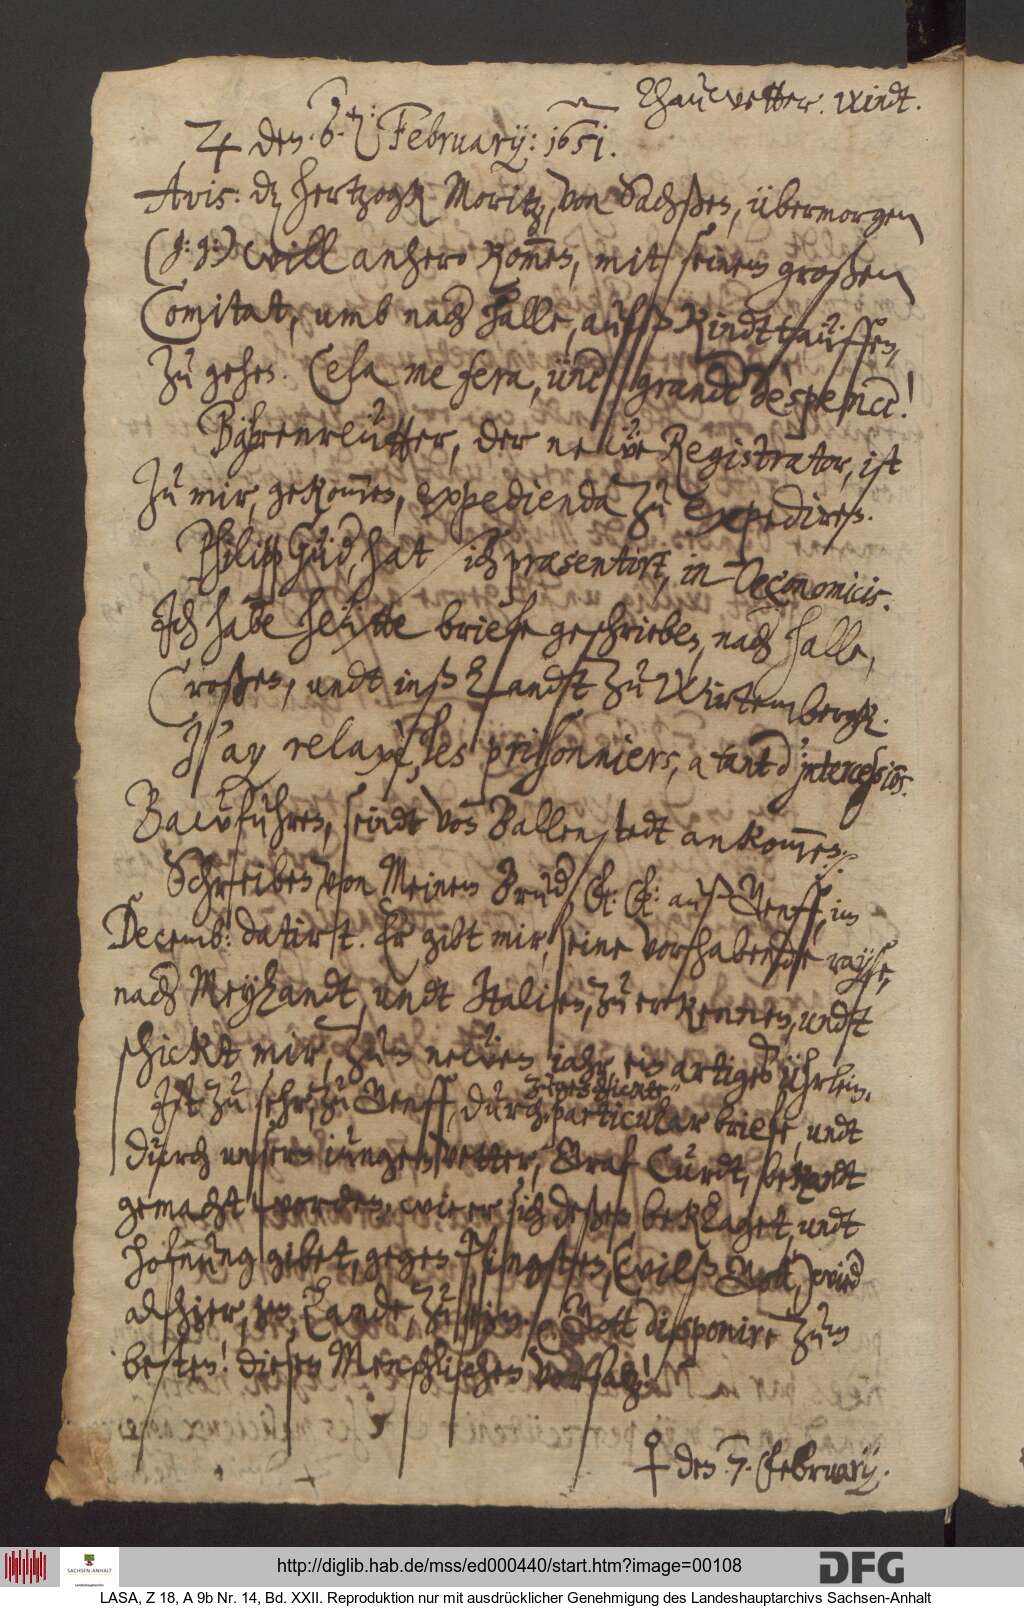 Thauwetter. Windt.
♃ den 6.ten: February: 1651.
Avis: dz hertzogk Moritz, von Sachßen, übermorgen
(g: g:) will anhero kom̄en, mit seinem großen
Comitat, umb nach Halle, aufs Kindttauffen,
zu gehen. Cela me fera, und grand despence!
Bährenreutter, der neẅe Registrator, ist
zu mir, gekom̄en, expedienda zu expediren.
Philipp Güder, hat sich præsentirt, in Oeconomicis.
Ich habe heütte briefe geschrieben, nach Halle,
Croßen, undt inß Landt zu Wirtembergk.
J'ay relaxè, les prisonniers, a tant d'intercessions.
Baẅfuhren, seindt von Ballenstedt ankom̄en.
Schreiben von Meinem Bruder F: F: auß Genff, im
Decemb: datirt. Er gibt mir, seine vorhabende rayse,
nach Meylandt, undt Italien, zu erkennen, undt
schickt mir, zum neẅen iahr, ein artiges Uhrlein.
Ist zu sehr, zu Genff, durch zugeschickte particular briefe, undt
durch unsern iungen vetter, Graf Curdt, bekandt
gemacht worden, wie er sich deßen beklaget, undt
hofnung gibet, gegen Pfingsten, (wilß Gott) wieder
alhier, im Lande, zu sein. Gott disponire zum
besten! diesen Menschlichen vorsatz!
♀ den 7. February.
http://diglib.hab.de/mss/ed000440/start.htm?image=00108
SACHSEN-ANHALT
Landeshauptarchiv
DFG
LASA, Z 18, A 9b Nr. 14, Bd. XXII. Reproduktion nur mit ausdrücklicher Genehmigung des Landeshauptarchivs Sachsen-Anhalt